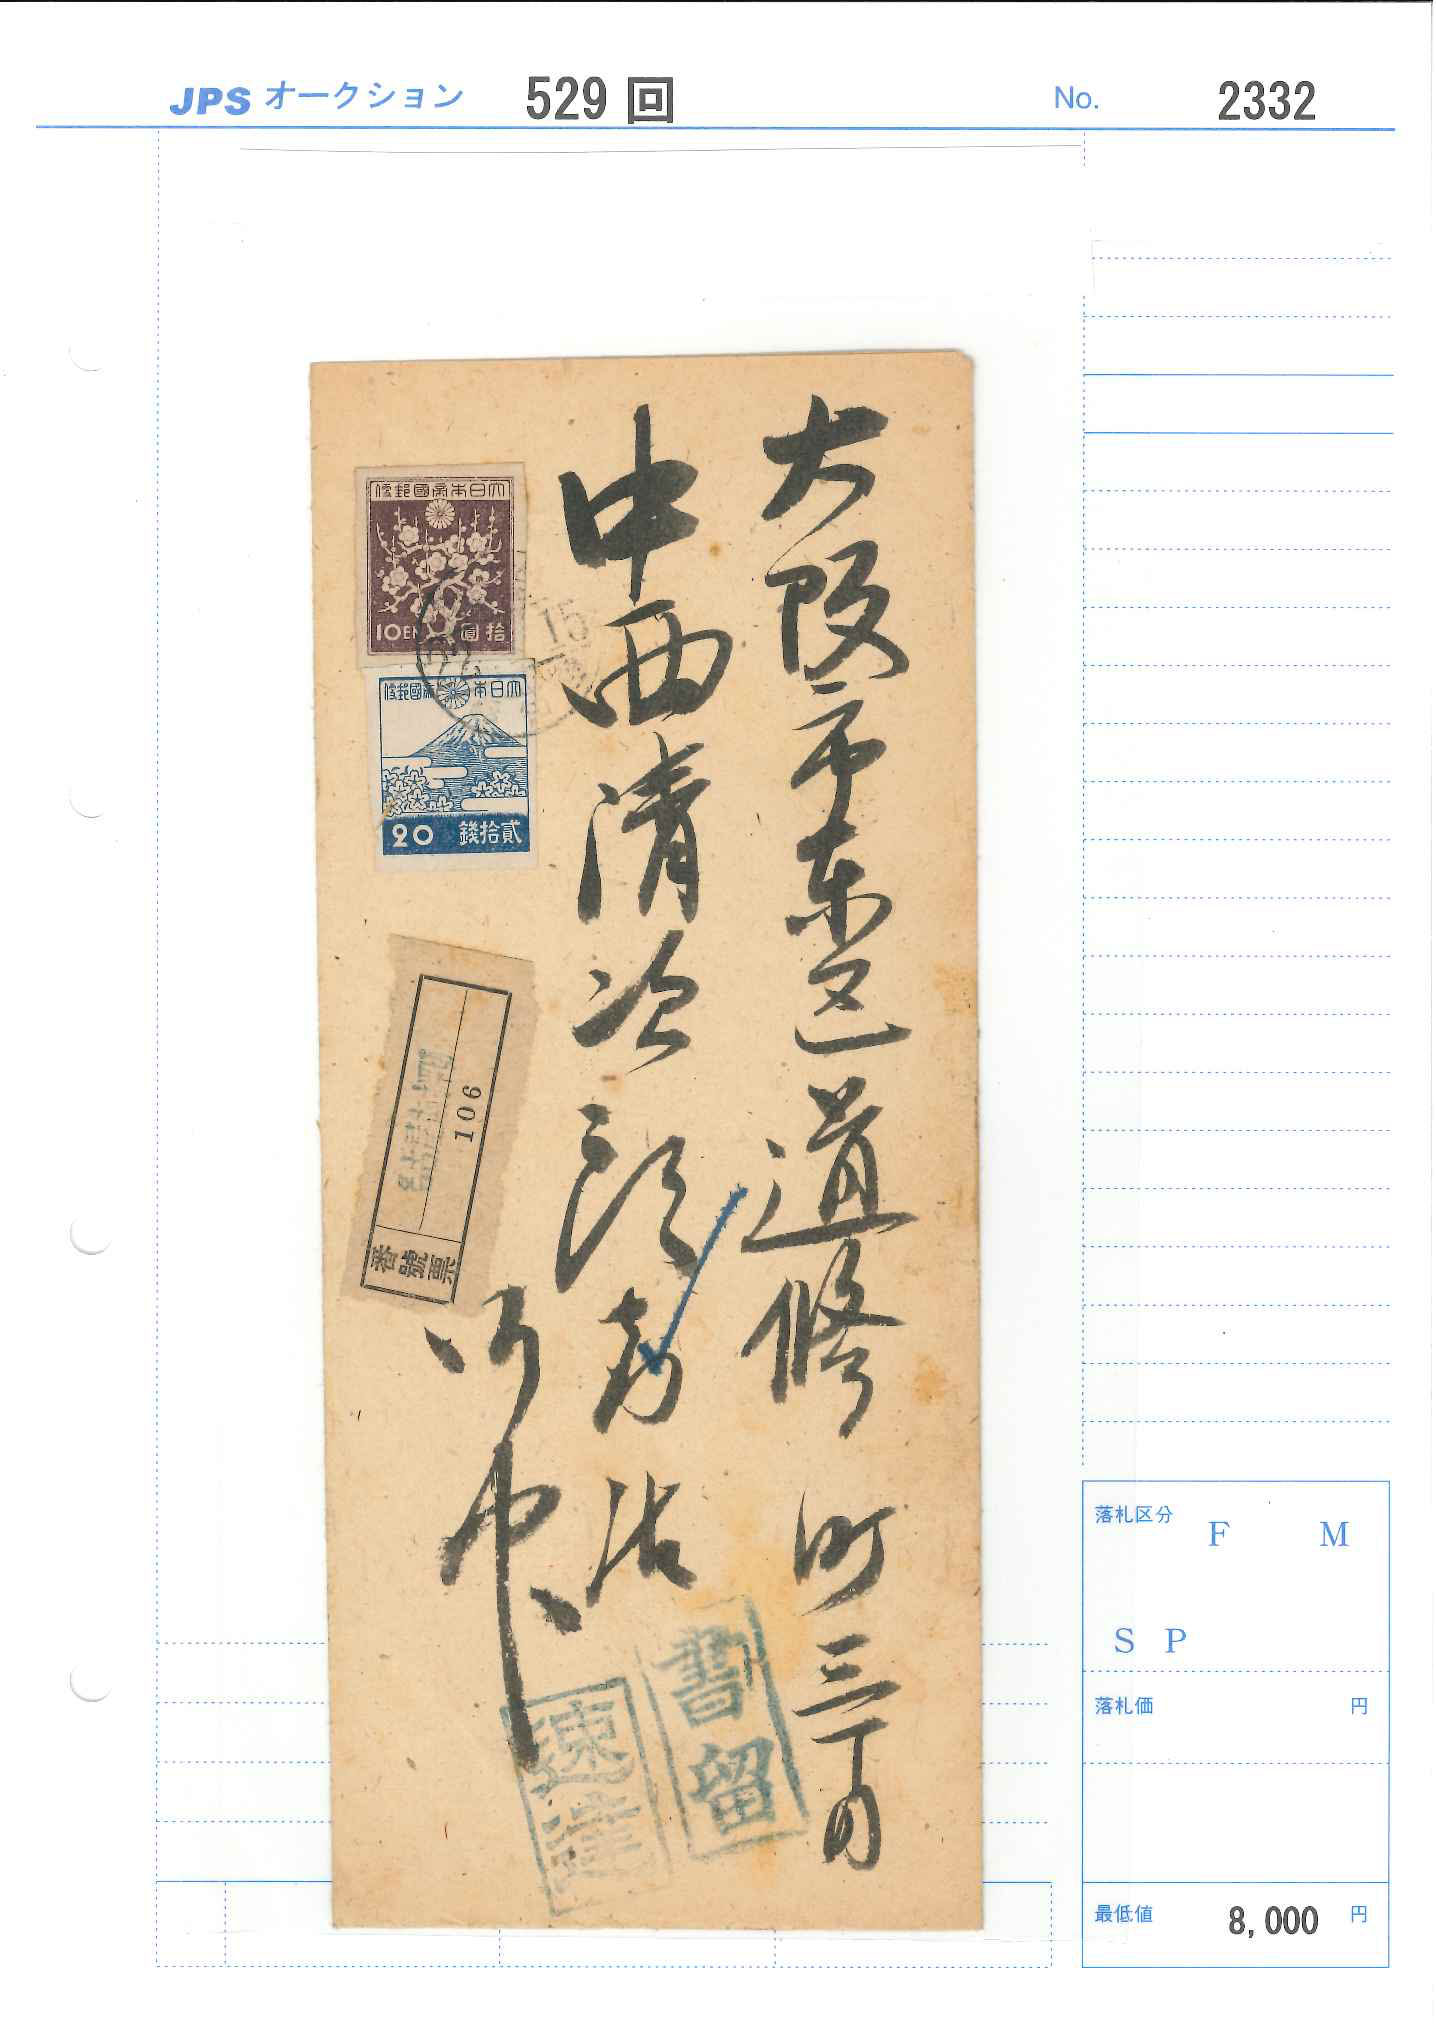 JPS オークション 529 回 No. 2332
大阪市東区道修町三丁目
中西清次郎商店
御中
大日本帝國郵便
10EN 拾圓
大日本帝國郵便
20 貳拾錢
15
106
番號票
書留
速達
落札区分
F M
S P
落札価 円
最低値 8,000 円